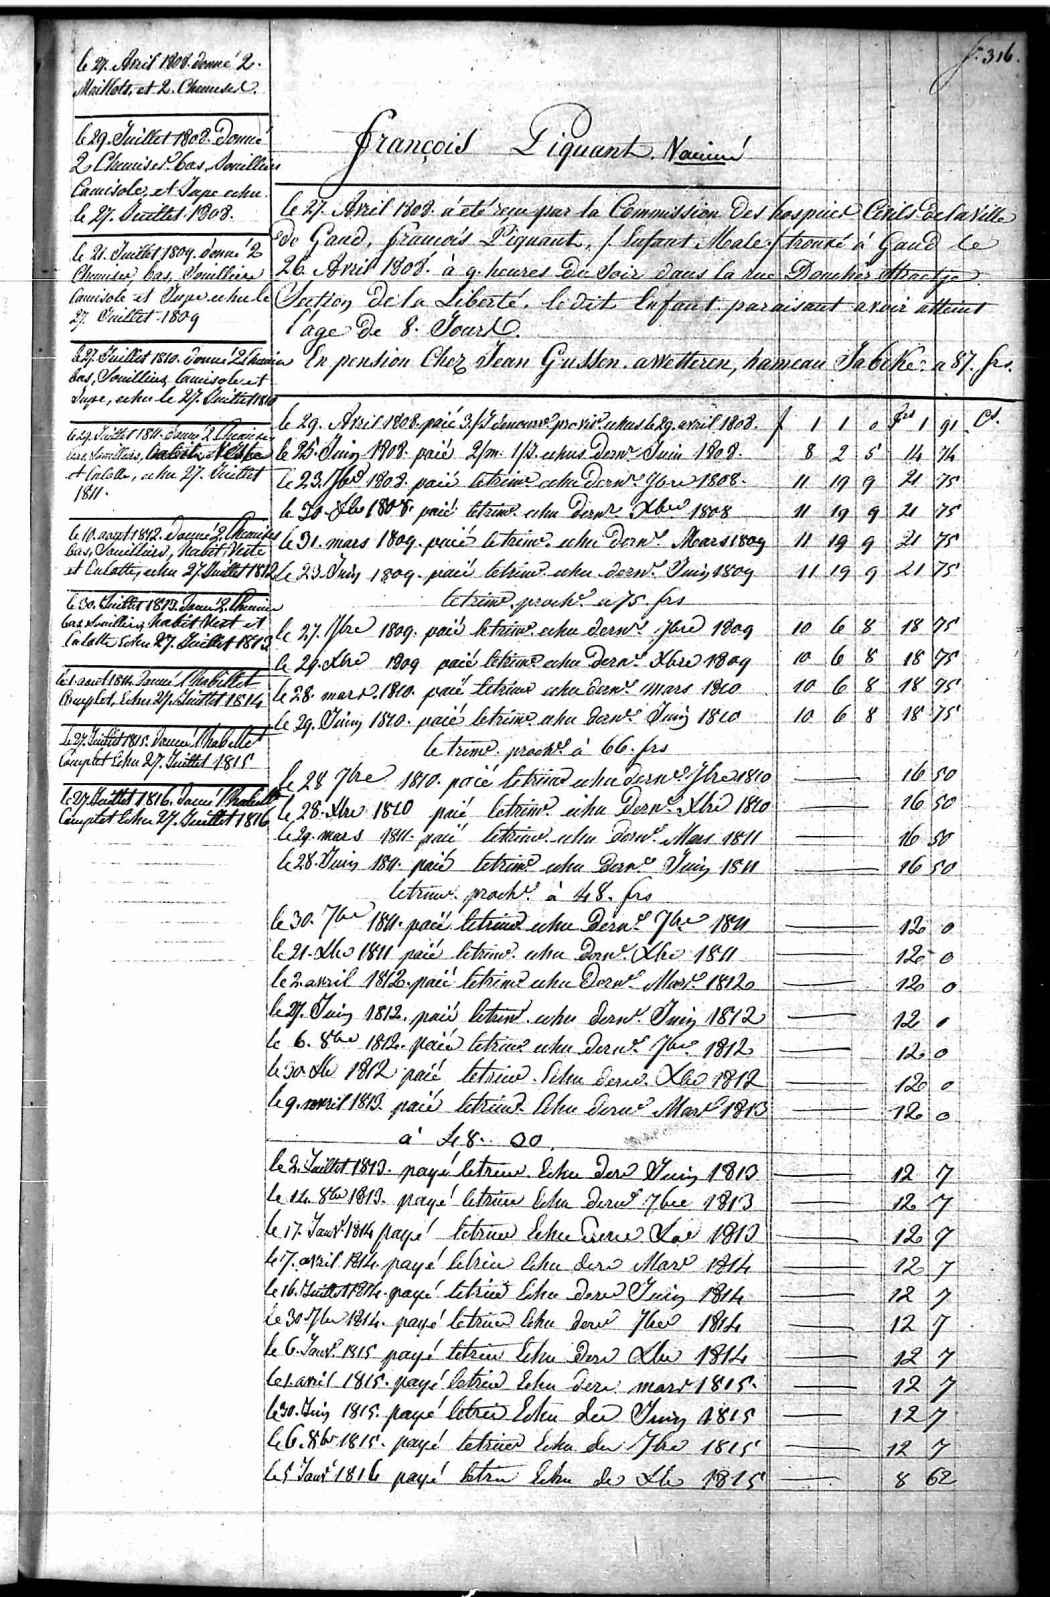 f. 316.
le 27. Avril 1808. donné 2.
Maillots, et 2. Chemises.
le 29. Juillet 1808. Donné
2 Chemises. bas, Souilliers
Camisole, et Jupe echu
le 27. Juillet 1808.
le 21. Juillet 1809. donné 2
Chemises, bas, Souilliers
Camisole et Jupe echu le
27. Juillet 1809
le 27. Juillet 1810. donné 2 Chemises
bas, Souilliers, Camisole et
Jupe, echu le 27. Juillet 1810
le 29. Juillet 1811. donné 2 Chemises
bas, Souilliers, habit Veste
et Culotte, echu 27. Juillet
1811.
le 10. aout 1812. Donné 2 Chemises
bas, Souilliers, habit Veste
et Culotte, echu 27. Juillet 1812
le 30. Juillet 1813. Donné 2. Chemises
bas, Souilliers, habit Vest et
Culotte Echu 27. Juillet 1813
le 1. aout 1814. Donné l'habillet
Complet, Echu 27. Juillet 1814
le 27. Juillet 1815. Donné l'habillet
Complet Echu 27. Juillet 1815
le 27. Juillet 1816. Donné l'habillt
Complet Echu 27. Juillet 1816
François Piquant. Vacciné
le 27. Avril 1808. a été reçu par la Commission des hospices Civils de la Ville
de Gand, françois Piquant, / Enfant Male / trouvé à Gand le
26. Avril 1808. à 9. heures du Soir dans la rue Straetje
Section de la Liberté. le dit Enfant paraisant avoir atteint
l'age de 8. Jours.
En pension Chez Jean Gussen. a Wetteren, hameau Jabeke. a 87. frs.
le 29. Avril 1808. paié 3. echus le 29. avril 1808. f 1 1 0 frs 1 91 Cs.
le 25. Juin 1808. paié 2/m. 1/2. echus dernr. Juin 1808. 8 2 5 14 74
le 23. 7bre 1808. paié le trime. echu dernr. 7bre 1808. 11 19 9 21 75
le 30. Xbre 1808. paié le trime. echu dernr. Xbre 1808 11 19 9 21 75
le 31. mars 1809. paié le trime. echu dernr. Mars 1809 11 19 9 21 75
le 23. Juin 1809. paié le trime. echu dernr. Juin 1809 11 19 9 21 75
le trime. proche. a 75. frs
le 27. 7bre 1809. paié le trime. echu dernr. 7bre 1809 10 6 8 18 75
le 29. Xbre 1809 paié le trime. echu dernr. Xbre 1809 10 6 8 18 75
le 28. mars. 1810. paié le trime echu dernr. mars 1810 10 6 8 18 75
le 29. Juin 1810. paié le trime. echu dernr. Juin 1810 10 6 8 18 75
le trime. proche. à 66. frs
le 28 7bre 1810. paié le trime echu dernr. 7bre 1810 16 50
le 28. Xbre 1810 paié le trime. echu dernr. Xbre 1810 16 50
le 29. mars 1811. paié le trime. echu dernr. Mars 1811 16 50
le 28. Juin 1811. paié le trime. echu dernr. Juin 1811 16 50
le trime. proche. à 48. frs
le 30. 7bre 1811. paié le trime echu dernr. 7bre 1811 12 0
le 21. Xbre 1811 paié le trime. echu dernr. Xbre 1811 12 0
le 2. avril 1812. paié le trime echu dernr. Mars 1812 12 0
le 27. Juin 1812. paié le trime. echu dernr. Juin 1812 12 0
le 6. 8bre 1812. paié le trime. echu dernr. 7bre. 1812 12 0
le 30 Xbre 1812 paié le trime. Echu dern. Xbre 1812 12 0
le 9. avril 1813. paié le trime. Echu dernr Mars 1813 12 0
à 48. 30.
le 2. Juillet 1813. payé le trime Echu der Juin 1813 12 7
le 14. 8bre 1813. payé le trime Echu dernr 7bre 1813 12 7
le 17. Janvr 1814 payé le trime Echu dern Xbre 1813 12 7
le 17. avril 1814. payé le trime Echu dern Mars 1814 12 7
le 16. Juillet 1814. payé le trime Echu dern Juin 1814 12 7
le 30 7bre 1814. payé le trime Echu dern 7bre 1814 12 7
le 6. Janvr. 1815 payé le trime Echu dern Xbre 1814 12 7
le 1. avril 1815. payé le trime Echu dern mars 1815. 12 7
le 30. Juin 1815. payé le trim Echu der Juin 1815 12 7
le 6. 8bre 1815. payé le trime Echu der 7bre 1815 12 7
le 5 Janvr 1816 payé le trim Echu de Xbre 1815 8 62